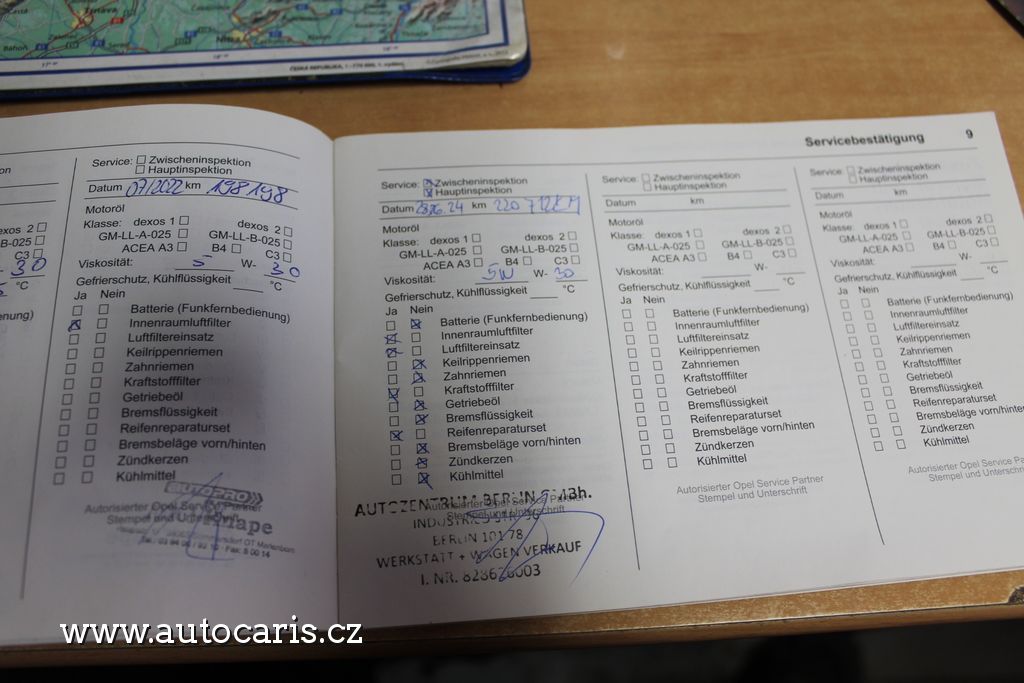 Trnava
Nitra
ČESKÁ REPUBLIKA, 1
Service: Zwischeninspektion
Hauptinspektion
Datum 07/2022 km 198198
Motoröl
Klasse: dexos 1 dexos 2
GM-LL-A-025 GM-LL-B-025
ACEA A3 B4 C3
Viskosität: 5 W- 30
Gefrierschutz, Kühlflüssigkeit °C
Ja Nein
Batterie (Funkfernbedienung)
Innenraumluftfilter
Luftfiltereinsatz
Keilrippenriemen
Zahnriemen
Kraftstofffilter
Getriebeöl
Bremsflüssigkeit
Reifenreparaturset
Bremsbeläge vorn/hinten
Zündkerzen
Kühlmittel
AUTOPRO
Autorisierter Opel Service Partner
Stempel und Unterschrift
Servicebestätigung 9
Service: Zwischeninspektion
Hauptinspektion
Datum km 220 712KM
Motoröl
Klasse: dexos 1 dexos 2
GM-LL-A-025 GM-LL-B-025
ACEA A3 B4 C3
Viskosität: 5W W- 30
Gefrierschutz, Kühlflüssigkeit °C
Ja Nein
Batterie (Funkfernbedienung)
Innenraumluftfilter
Luftfiltereinsatz
Keilrippenriemen
Zahnriemen
Kraftstofffilter
Getriebeöl
Bremsflüssigkeit
Reifenreparaturset
Bremsbeläge vorn/hinten
Zündkerzen
Kühlmittel
Autorisierter Opel Service Partner
Stempel und Unterschrift
AUTOZENTRUM BERLIN GMBh.
BERLIN 10178
WERKSTATT + WAGEN VERKAUF
Service: Zwischeninspektion
Hauptinspektion
Datum km
Motoröl
Klasse: dexos 1 dexos 2
GM-LL-A-025 GM-LL-B-025
ACEA A3 B4 C3
Viskosität: W-
Gefrierschutz, Kühlflüssigkeit °C
Ja Nein
Batterie (Funkfernbedienung)
Innenraumluftfilter
Luftfiltereinsatz
Keilrippenriemen
Zahnriemen
Kraftstofffilter
Getriebeöl
Bremsflüssigkeit
Reifenreparaturset
Bremsbeläge vorn/hinten
Zündkerzen
Kühlmittel
Autorisierter Opel Service Partner
Stempel und Unterschrift
Service: Zwischeninspektion
Hauptinspektion
Datum km
Motoröl
Klasse: dexos 1 dexos 2
GM-LL-A-025 GM-LL-B-025
ACEA A3 B4 C3
Viskosität: W-
Gefrierschutz, Kühlflüssigkeit °C
Ja Nein
Batterie (Funkfernbedienung)
Innenraumluftfilter
Luftfiltereinsatz
Keilrippenriemen
Zahnriemen
Kraftstofffilter
Getriebeöl
Bremsflüssigkeit
Reifenreparaturset
Bremsbeläge vorn/hinten
Zündkerzen
Kühlmittel
Autorisierter Opel Service Pa
Stempel und Unterschrift
www.autocaris.cz